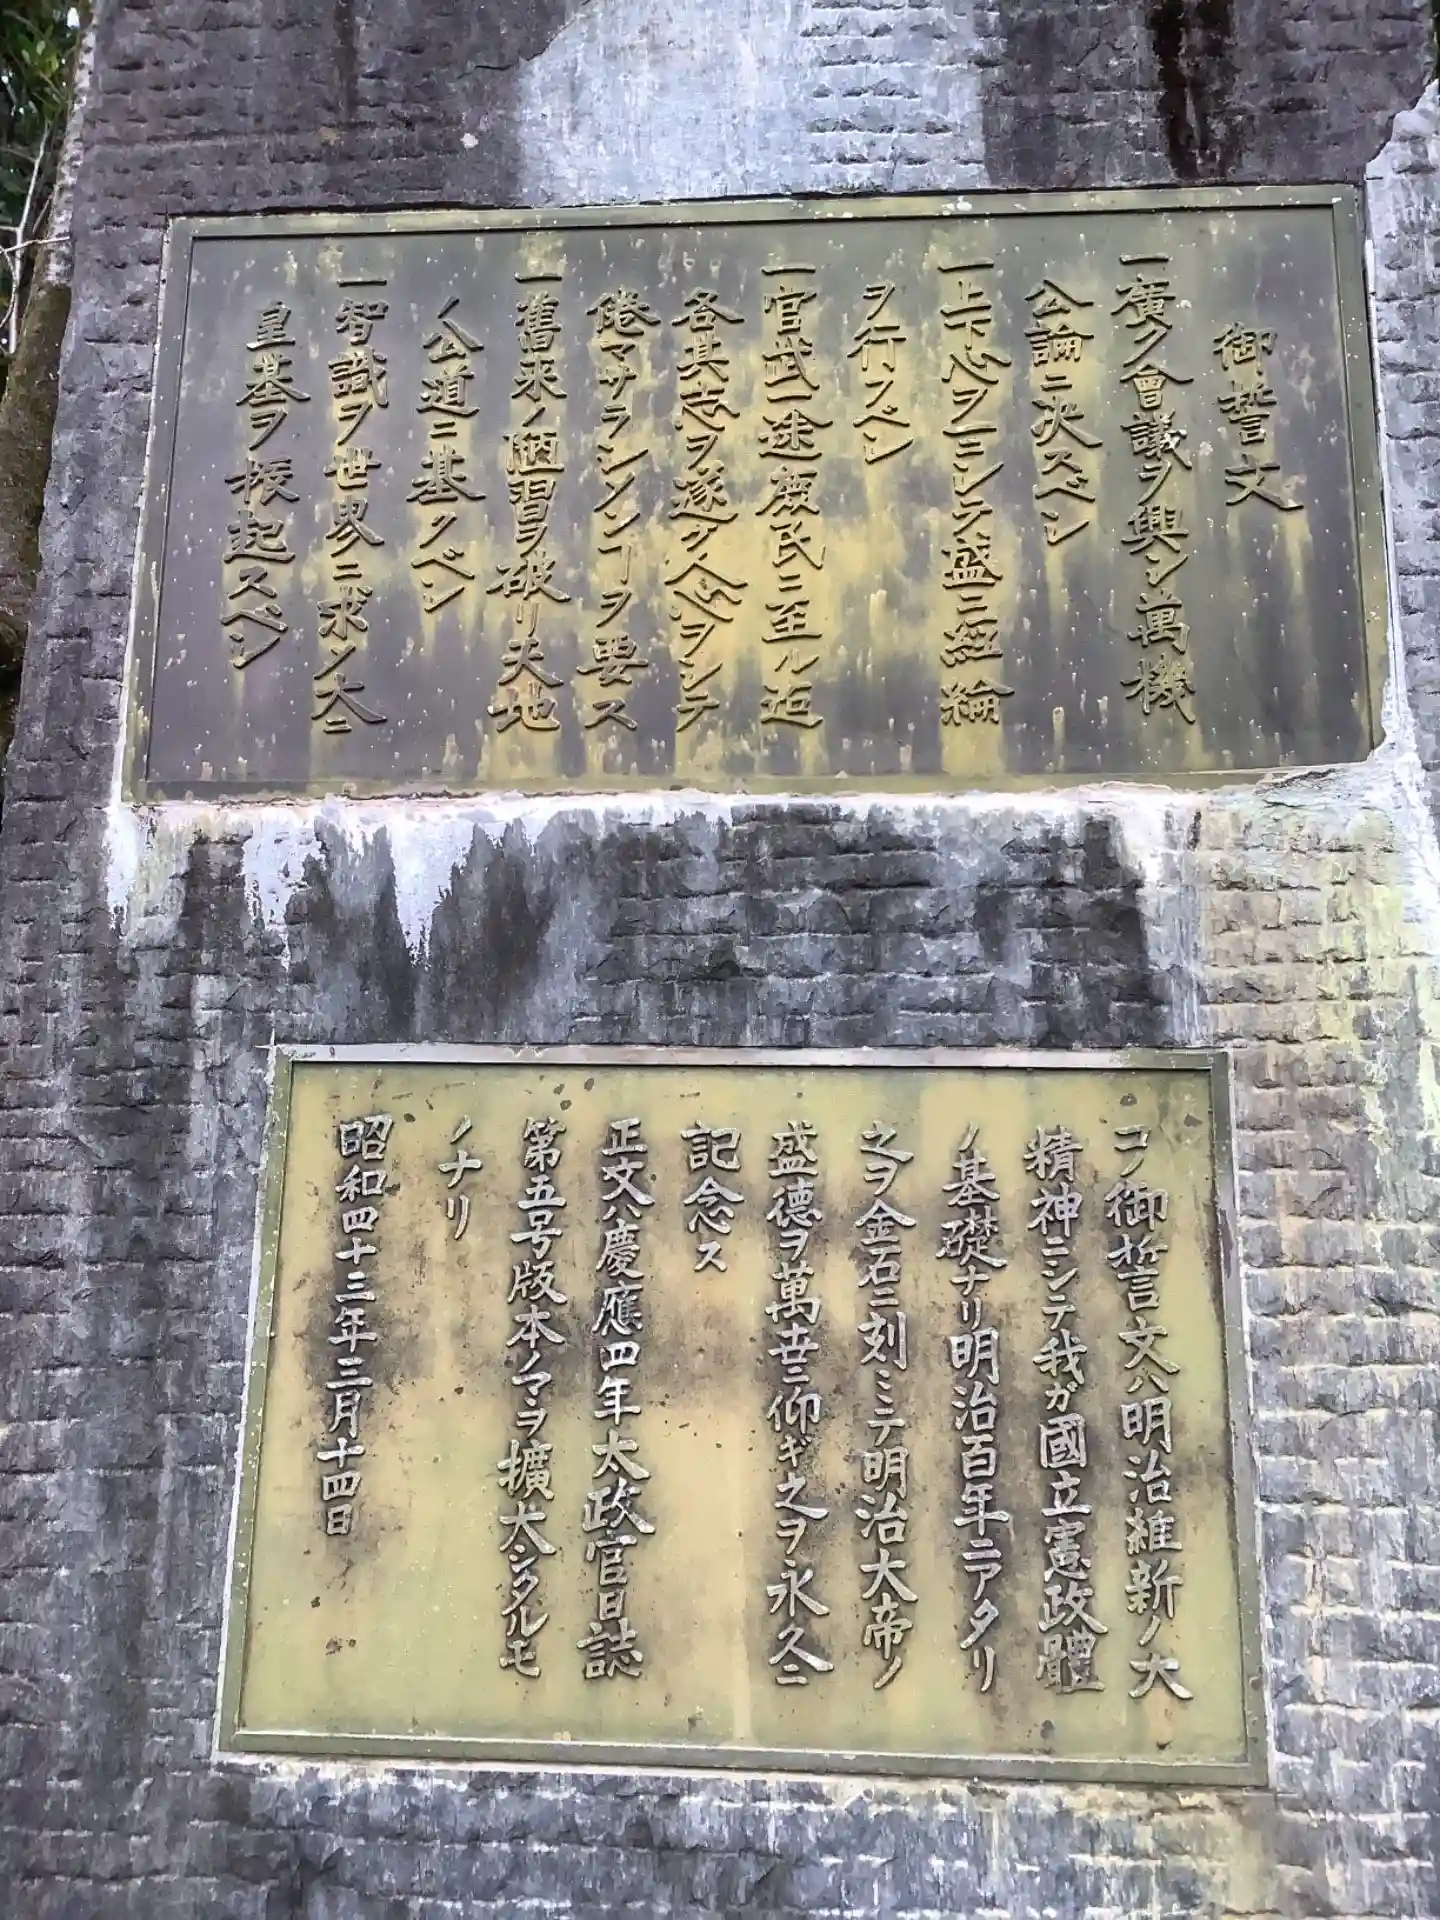 御誓文
一廣ク會議ヲ興シ萬機
公論ニ决スベシ
一上下心ヲ一ニシテ盛ニ經綸
ヲ行フベシ
一官武一途庶民ニ至ル迄
各其志ヲ遂ケ人心ヲシテ
倦マサラシメンヿヲ要ス
一舊來ノ陋習ヲ破リ天地
ノ公道ニ基クベシ
一智識ヲ世界ニ求メ大ニ
皇基ヲ振起スベシ
コノ御誓文ハ明治維新ノ大
精神ニシテ我ガ國立憲政體
ノ基礎ナリ明治百年ニアタリ
之ヲ金石ニ刻ミテ明治大帝ノ
盛德ヲ萬世ニ仰ギ之ヲ永久ニ
記念ス
正文ハ慶應四年太政官日誌
第五号版本ノマヽヲ擴大シタルモ
ノナリ
昭和四十三年三月十四日